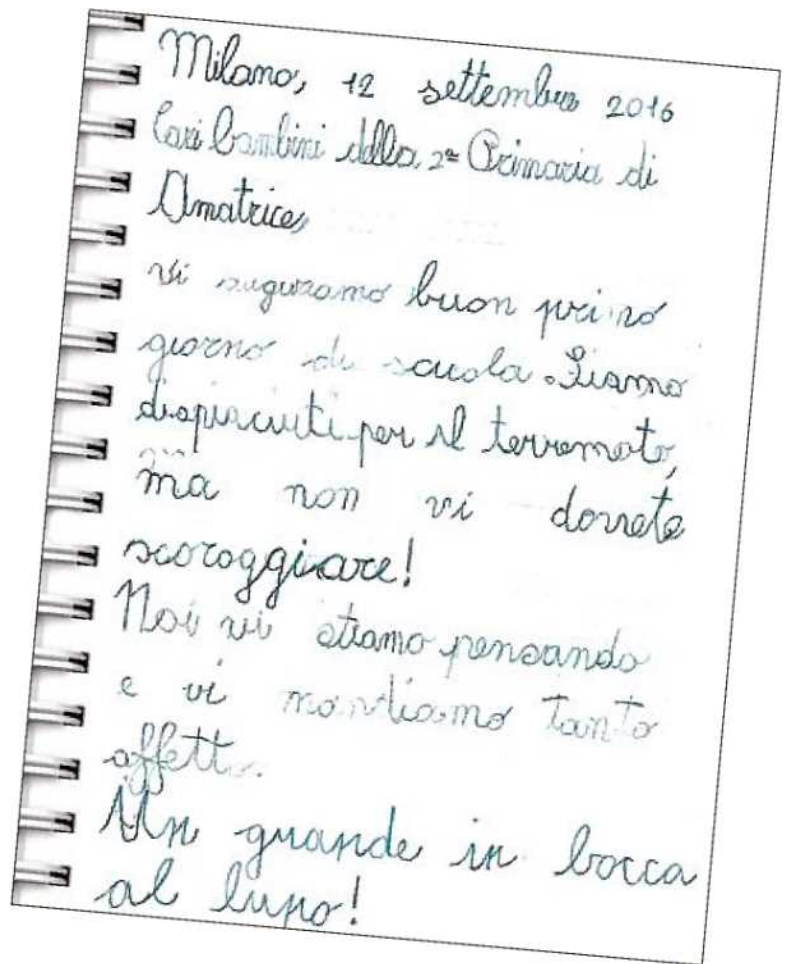 Milano, 12 settembre 2016
Cari bambini della 2ª Primaria di
Amatrice,
vi auguriamo buon primo
giorno di scuola. Siamo
dispiaciuti per il terremoto,
ma non vi dovete
scoraggiare!
Noi vi stiamo pensando
e vi mandiamo tanto
affetto.
Un grande in bocca
al lupo!